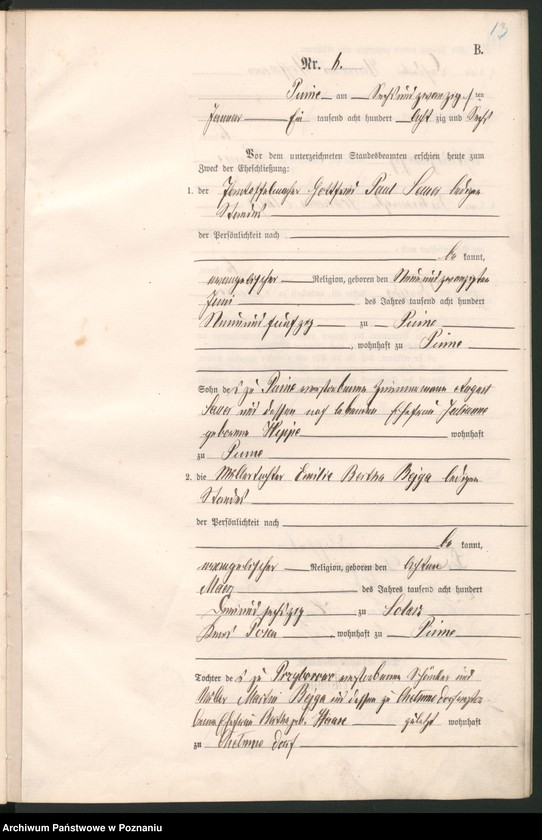 13
B.
Nr. 6.
Pinne am Sechsundzwanzigsten
Januar Ein tausend acht hundert acht zig und Sechs
Vor dem unterzeichneten Standesbeamten erschien heute zum
Zweck der Eheschließung:
1. der Paul lediger
Standes
der Persönlichkeit nach
be kannt,
evangelischer Religion, geboren den Neunundzwanzigsten
Juni des Jahres tausend acht hundert
Neunundfünfzig zu Pinne
, wohnhaft zu Pinne
Sohn des zu Pinne verstorbenen Zimmermann August
und dessen noch lebenden Ehefrau Julianne
geborene wohnhaft
zu Pinne
2. die Müllertochter Emilie Bertha Bejga ledigen
Standes
der Persönlichkeit nach
be kannt,
evangelischer Religion, geboren den Achten
März des Jahres tausend acht hundert
Dreiundsechszig zu
Kreis Posen, wohnhaft zu Pinne
Tochter des zu verstorbenen und
Müller Martin Bejga und dessen zu Chelmno dorf
Ehefrau geb. Haase zuletzt wohnhaft
zu Chelmno dorf
Archiwum Państwowe w Poznaniu